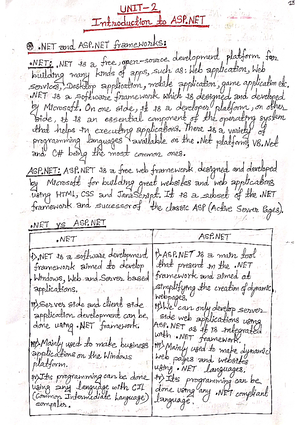 UNIT-2
Introduction to ASP.NET
.NET and ASP.NET frameworks:
.NET: .NET is a free, open-source development platform for
building many kinds of apps, such as: Web application, Web
services, Desktop application, mobile application, game application etc.
.NET is a software framework which is designed and developed
by Microsoft. On one side, it is a developer platform, on other
side, it is an essential component of the operating system
that helps in executing applications. There is a variety of
programming languages available on the .Net platform, VB.Net
and C# being the most common ones.
ASP.NET: ASP.NET is a free web framework designed and developed
by Microsoft for building great websites and web applications
using HTML, CSS and JavaScript. It is a subset of the .NET
framework and successor of the classic ASP (Active Server Pages).
.NET vs ASP.NET
.NET
i). .NET is a software development
framework aimed to develop
Windows, Web and Server based
applications.
ii) Server side and client side
application development can be
done using .NET framework.
iii) Mainly used to make business
applications on the Windows
platform.
iv) Its programming can be done
using any language with CIL
(Common Intermediate Language)
compiler.
ASP.NET
i). ASP.NET is a main tool
that present in the .NET
framework and aimed at
simplifying the creation of dynamic
webpages.
ii) We can only develop server
side web applications using
ASP.NET as it is integrated
with .NET framework.
iii) Mainly used to make dynamic
web pages and websites
using .NET languages.
iv) Its programming can be
done using any .NET compliant
language.